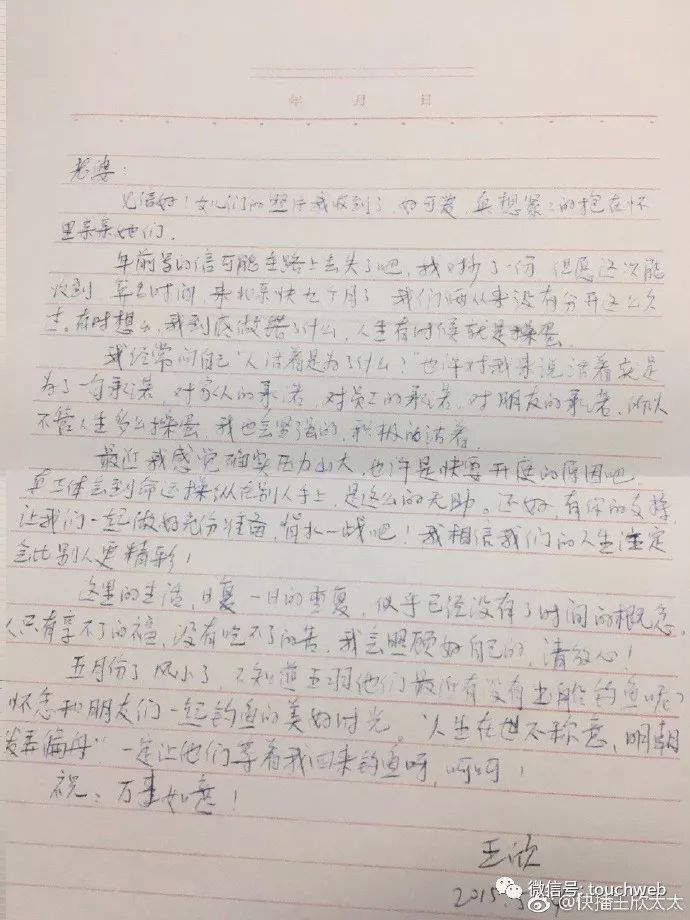 年 月 日
老婆：
见信好！女儿们的照片我收到了，好可爱，真想紧紧的抱在怀
里亲亲她们。
年前写的信可能在路上丢失了吧，我又抄了一份，但愿这次能
收到。算算时间，来北京快九个月了，我们俩从来没有分开这么久
过。有时想想，我到底做错了什么，人生有时候就是操蛋。
我经常问自己“人活着是为了什么？”也许对我来说，活着就是
为了一句承诺，对家人的承诺，对员工的承诺，对朋友的承诺，所以
不管人生多么操蛋，我也会坚强的，积极的活着。
最近我感觉确实压力山大，也许是快要开庭的原因吧。
真正体会到命运操纵在别人手上，是这么的无助。还好，有你的支撑，
让我们一起做好充分准备，背水一战吧！我相信我们的人生注定
会比别人更精彩！
这里的生活，日复一日的重复，似乎已经没有了时间的概念。
人只有享不了的福，没有吃不了的苦，我会照顾好自己的，请放心！
五月份了，风小了，不知道王羽他们最近有没有出船钓鱼呢？
怀念和朋友们一起钓鱼的美好时光。“人生在世不称意，明朝
散发弄扁舟”一定让他们等着我回来钓鱼呀，呵呵！
祝：万事如意！
王欣
2015.5
微信号: touchweb
@快播王欣太太